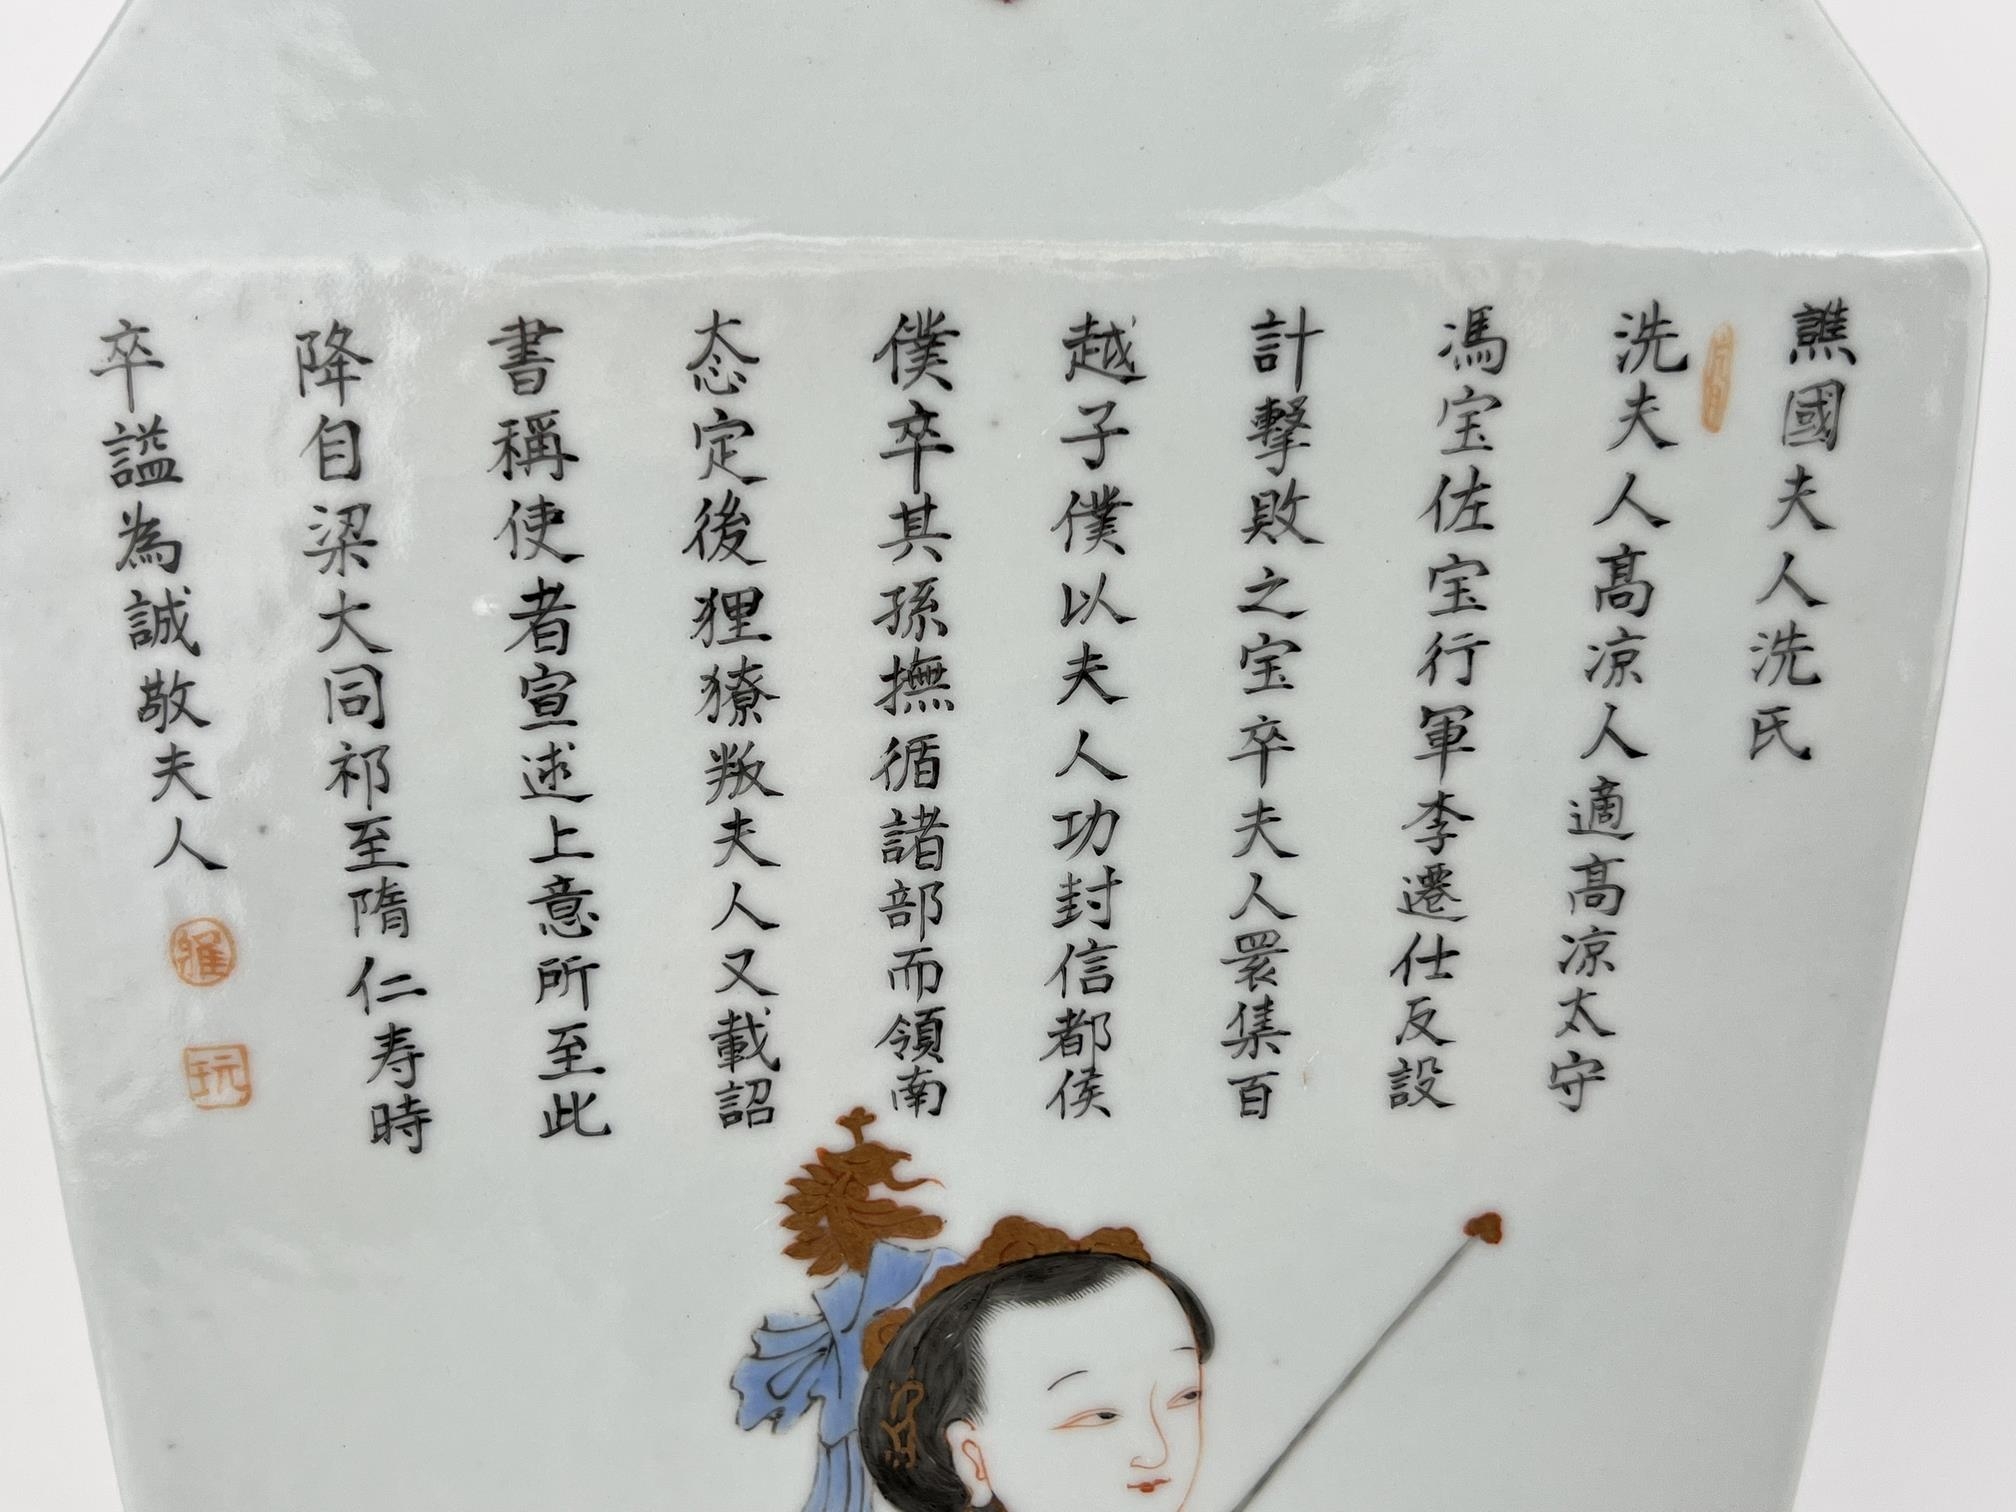 譙國夫人洗氏
洗夫人高凉人適高凉太守
馮宝佐宝行軍李遷仕反設
計擊敗之宝卒夫人褁集百
越子僕以夫人功封信都侯
僕卒其孫撫循諸部而領南
态定後狸獠叛夫人又載詔
書稱使者宣述上意所至此
降自梁大同祁至隋仁寿時
卒謚為誠敬夫人
雅
玩